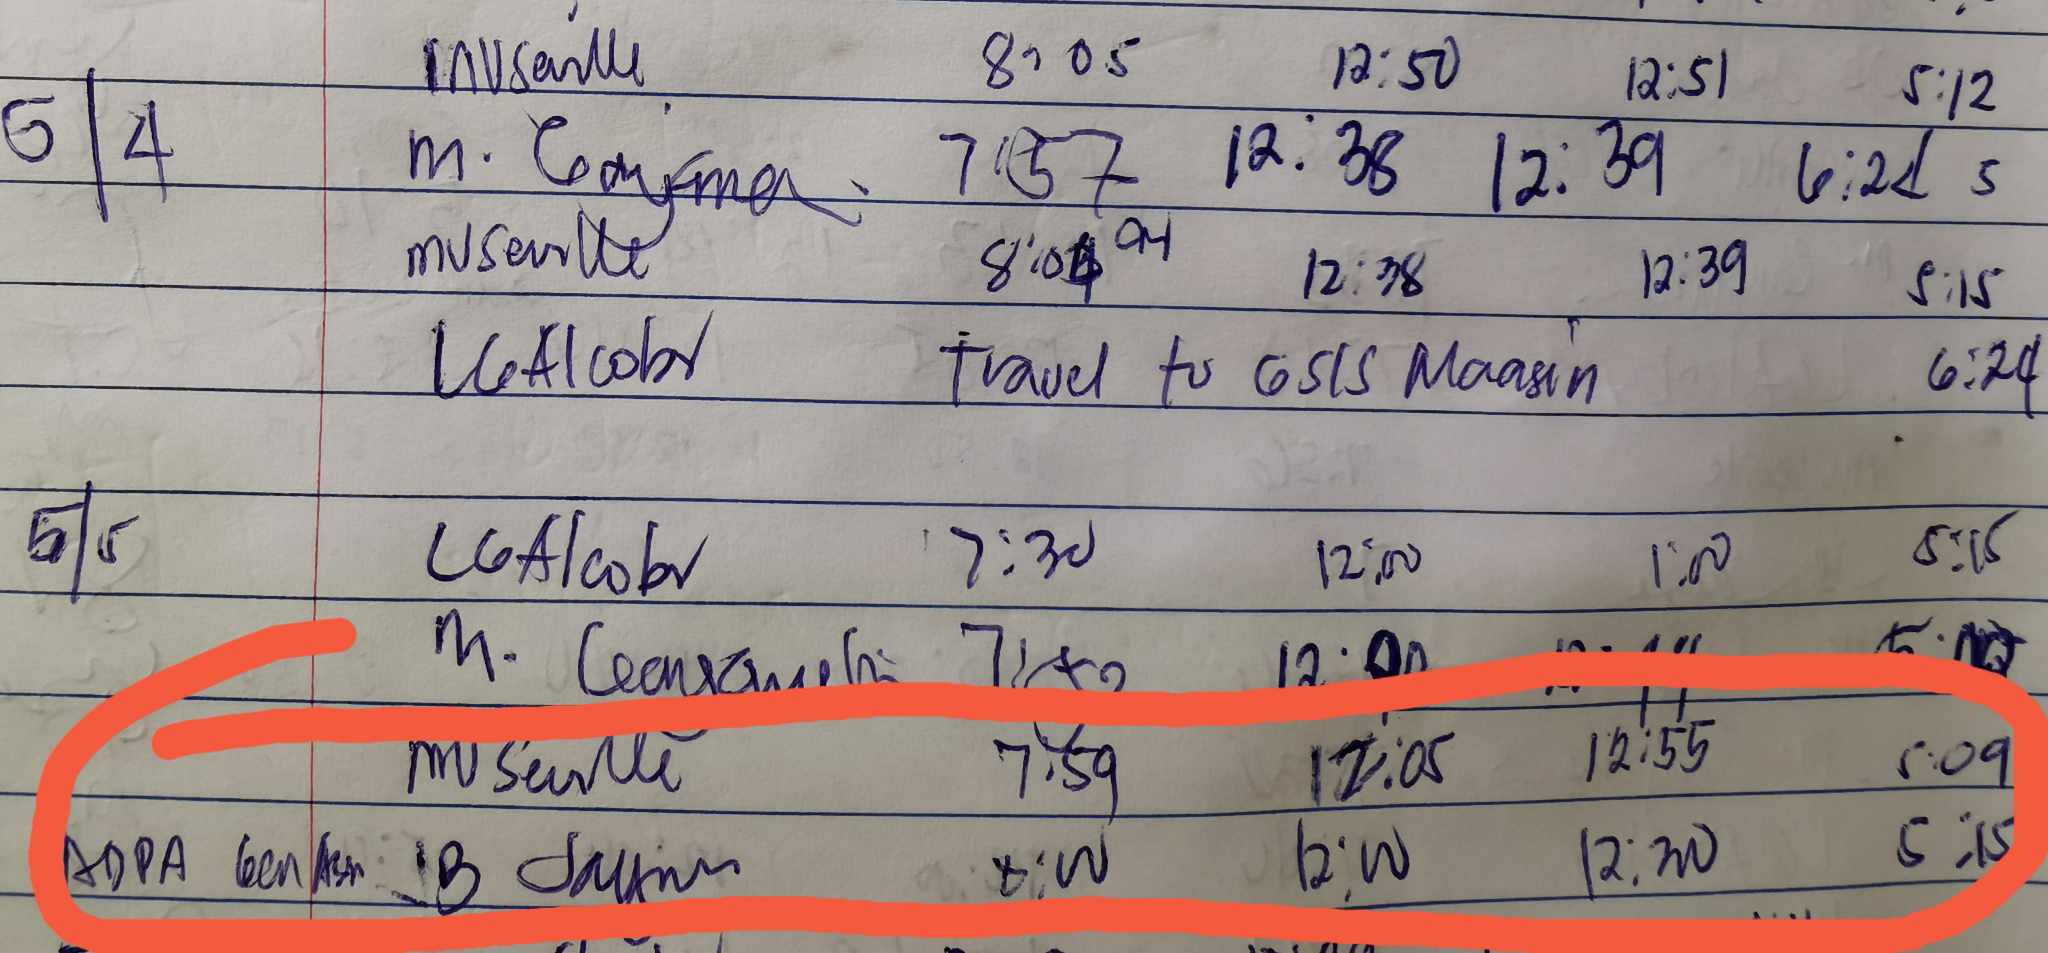 MVSeville 8:05 12:50 12:51 5:12
5/4 M. 7:57 12:38 12:39 6:24 5
MVSeville 8:04 04 12:38 12:39 5:15
LGAlcober Travel to GSIS Maasin 6:24
5/5 LGAlcober 7:30 12:00 1:00 5:15
M. 12:00
MVSeville 7:59 12:05 12:55 5:09
ADPA Gen Asm JB 8:00 12:00 12:30 5:15